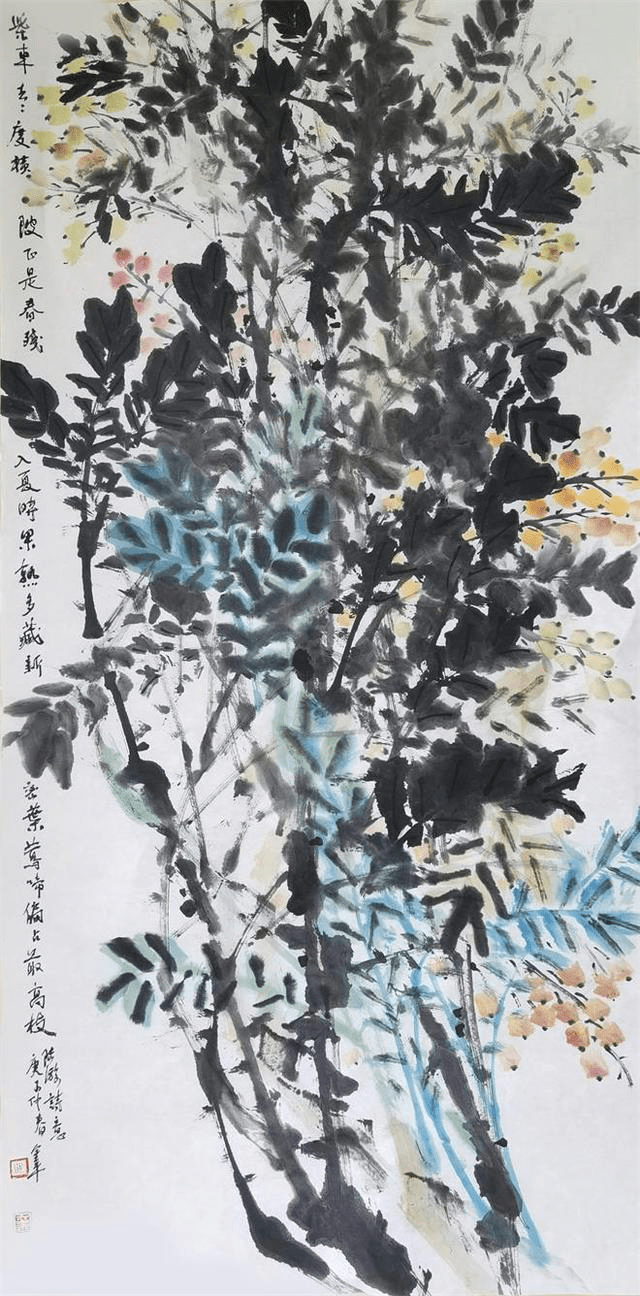 柴車去々度横陂正是春殘入夏時果熟多藏新密葉鶯啼偏占最高枝
陸游詩意
庚子仲春